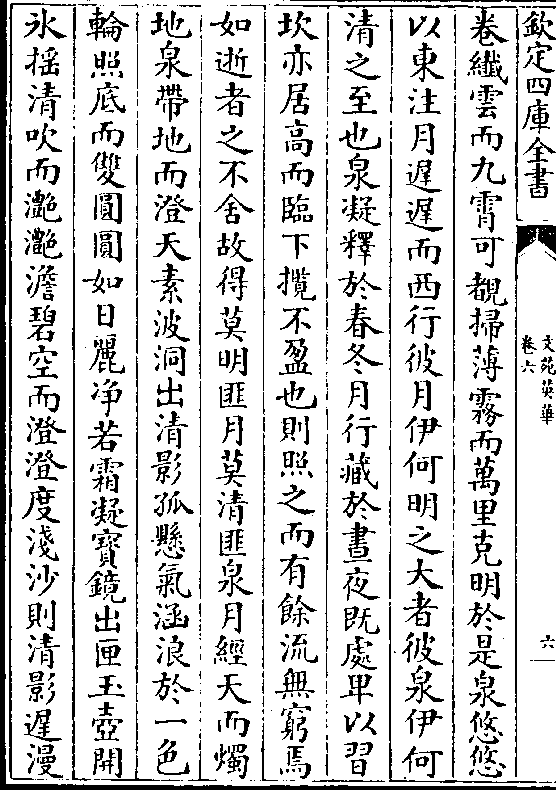 欽定四庫全書
文苑英華
卷六
六
卷纖雲而九霄可覩掃薄霧而萬里克明於是泉悠悠
以東注月遲遲而西行彼月伊何明之大者彼泉伊何
清之至也泉凝釋於春冬月行藏於晝夜既處卑以習
坎亦居高而臨下攬不盈也則照之而有餘流無窮焉
如逝者之不舍故得莫明匪月莫清匪泉月經天而燭
地泉帶地而澄天素波洞出清影孤懸氣涵浪於一色
輪照底而雙圓圓如日麗净若霜凝寶鏡出匣玉壺開
氷揺清吹而灔灔澹碧空而澄澄度淺沙則清影遲漫